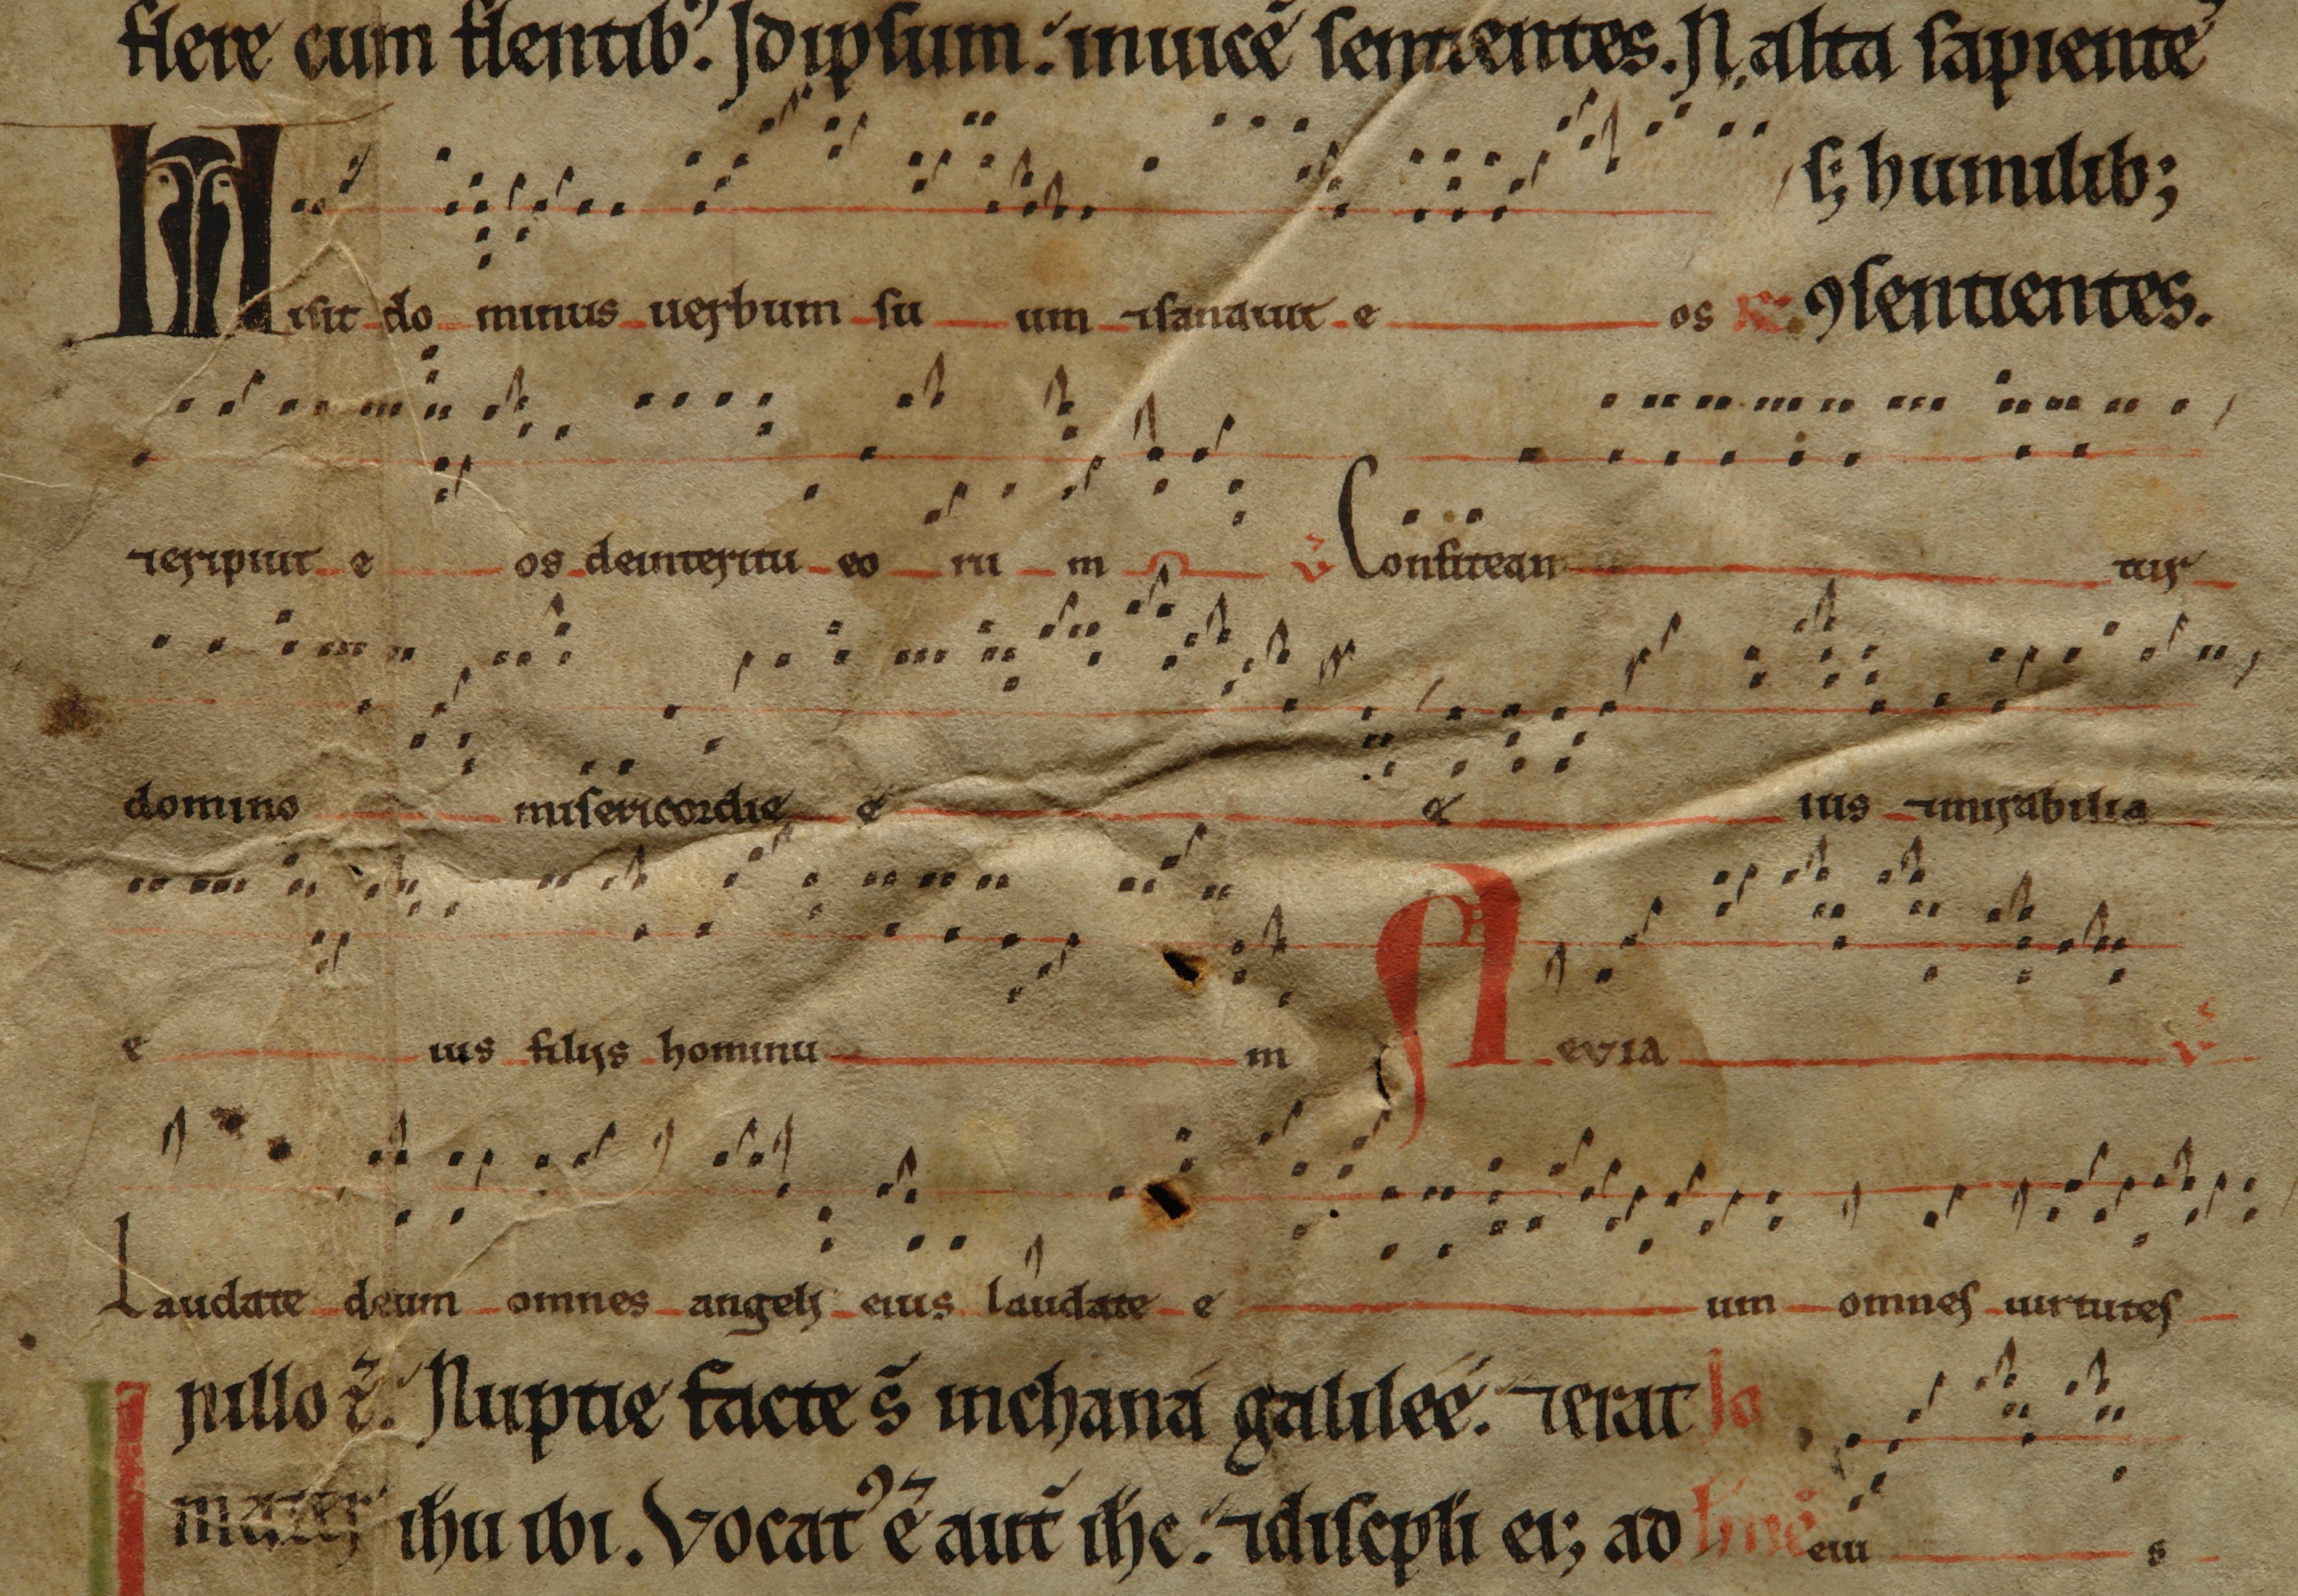 flere cum flentibꝰ. Jdipsum: inuicē sentientes. N̄ alta sapientēˢ
sꝫ humilibꝫ
Misit do minus uerbum su um ⁊sanauit e os
ꝯsentientes.
⁊eripuit e os deinteritu eo ru m ℣ Confitean tur
domino misericordie e e ius ⁊mirabilia
e ius filijs hominu m A evia ℣
Laudate deum omnes angeli eius laudate e um omnes uirtutes
nillo ē. Nuptie facte s̄ inchana galileę. ⁊erat
mater ihu ibi. Vocatꝰ ē aut̄ ihc: ⁊discipli eiꝫ ad eiu s